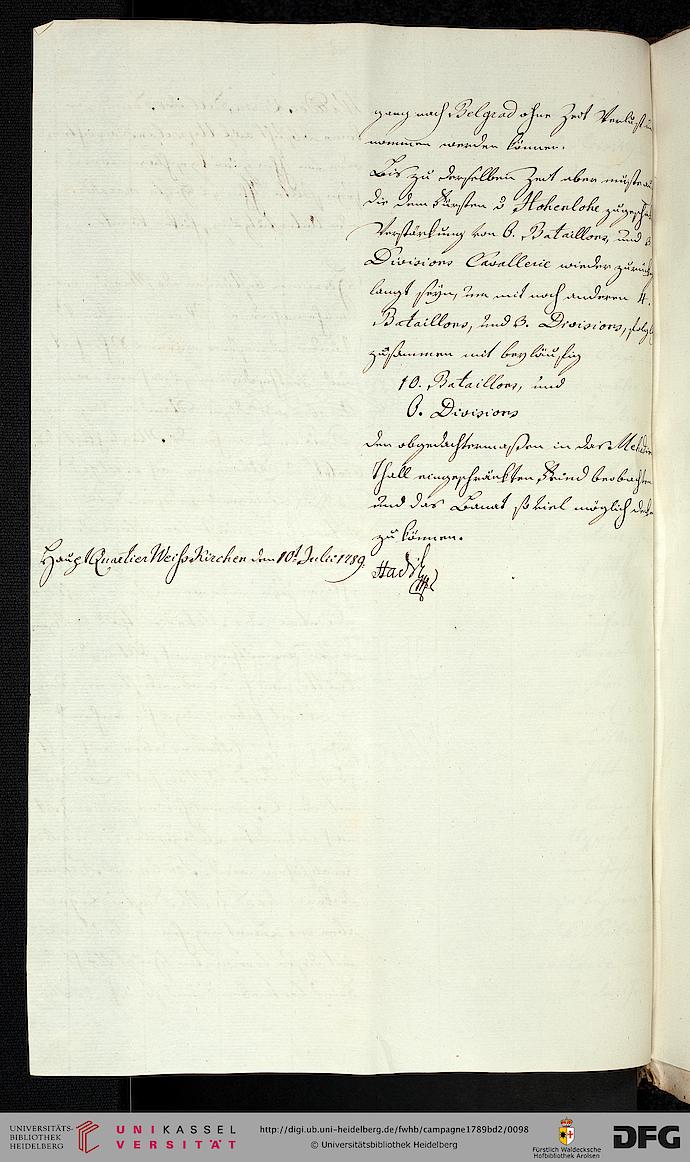 gang nach Belgrad ohne Zeit Verlust
nommen werden können.
Bis zu derselben Zeit aber müste
die dem Fürsten v Hohenlohe
Verstärkung von 6. Bataillons, und 3
Divisions Cavallerie wieder zurück
langt seÿn, um mit noch anderen 4.
Bataillons, und 3. Divisions, folgl
zusammen mit beÿläufig
10. Bataillons, und
6. Divisions
den obgedachtermaßen in das
Thall eingeschränkten Feind beobachten
und das Banat so viel möglich
zu können.
Haupt Quartier Weiss Kirchen den 10t Julii 1789.
Hadik
UNIVERSITÄTS-
BIBLIOTHEK
HEIDELBERG
UNIKASSEL
VERSITÄT
http://digi.ub.uni-heidelberg.de/fwhb/campagne1789bd2/0098
© Universitätsbibliothek Heidelberg
Fürstlich Waldecksche
Hofbibliothek Arolsen
DFG